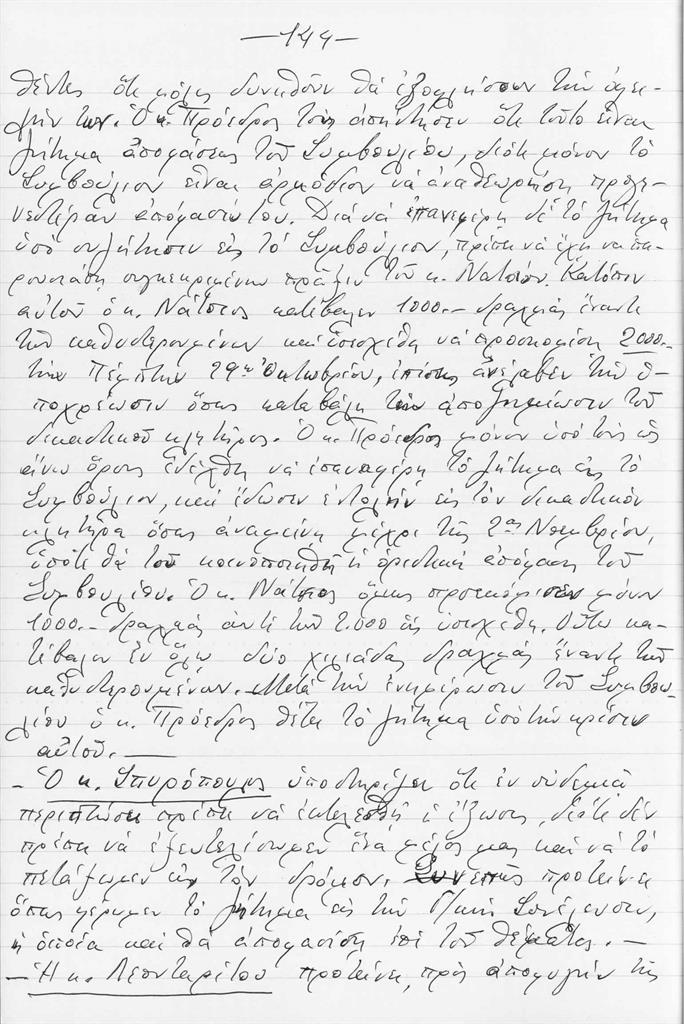 —144—
θέντες ὅτι μόλις δυνηθοῦν θὰ ἐξοφλήσουν τὴν ὀφει-
λήν των. Ὁ κ. Πρόεδρος τοὺς ἀπήντησεν ὅτι τοῦτο εἶναι
ζήτημα ἀποφάσεως τοῦ Συμβουλίου, διότι μόνον τὸ
Συμβούλιον εἶναι ἁρμόδιον νὰ ἀναθεωρήση προγε-
νεστέραν ἀπόφασίν του. Διὰ νὰ ἐπαναφέρη δὲ τὸ ζήτημα
ὑπὸ συζήτησιν εἰς τὸ Συμβούλιον, πρέπει νὰ ἔχη νὰ πα-
ρουσιάση συγκεκριμένην πρᾶξιν τοῦ κ. Νάτσιου. Κατόπιν
αὐτοῦ ὁ κ. Νάτσιος κατέβαλεν 1000.— δραχμὰς ἔναντι
τῶν καθυστερουμένων καὶ ὑπεσχέθη νὰ προσκομίση 2000.—
τὴν Πέμπτην 29ην Ὀκτωβρίου, ἐπίσης ἀνέλαβεν τὴν ὑ-
ποχρέωσιν ὅπως καταβάλη τὴν ἀποζημίωσιν τοῦ
δικαστικοῦ κλητῆρος. Ὁ κ. Πρόεδρος μόνον ὑπὸ τοὺς ὡς
ἄνω ὅρους ἐδέχθη νὰ ἐπαναφέρη τὸ ζήτημα εἰς τὸ
Συμβούλιον, καὶ ἔδωσεν ἐντολὴν εἰς τὸν δικαστικὸν
κλητῆρα ὅπως ἀναμείνη μέχρι τῆς 2ας Νοεμβρίου,
ὁπότε θὰ τοῦ κοινοποιηθῆ ἡ ὁριστικὴ ἀπόφασις τοῦ
Συμβουλίου. Ὁ κ. Νάτσιος ὅμως προσεκόμισεν μόνον
1000.— δραχμὰς ἀντὶ τῶν 2.000 ὡς ὑπεσχέθη. Οὕτω κα-
τέβαλεν ἐν ὅλω δύο χιλιάδας δραχμὰς ἔναντι τῶν
καθυστερουμένων. Μετὰ τὴν ἐνημέρωσιν τοῦ Συμβου-
λίου ὁ κ. Πρόεδρος θέτει τὸ ζήτημα ὑπὸ τὴν κρίσιν
αὐτοῦ. —
— Ὁ κ. Σπυρόπουλος ὑποστηρίζει ὅτι ἐν οὐδεμιᾶ
περιπτώσει πρέπει νὰ ἐκτελεσθῆ ἡ ἔξωσις, διότι δὲν
πρέπει νὰ ἐξευτελίσωμεν ἕνα μέλος μας καὶ νὰ τὸ
πετάξωμεν εἰς τὸν δρόμον. Συνεπῶς προτείνει
ὅπως φέρωμεν τὸ ζήτημα εἰς τὴν Γ/κὴν Συνέλευσιν,
ἡ ὁποία καὶ θὰ ἀποφασίση ἐπὶ τοῦ θέματος. —
— Ἡ κ. Λεονταρίτου προτείνει, πρὸς ἀποφυγὴν τῆς